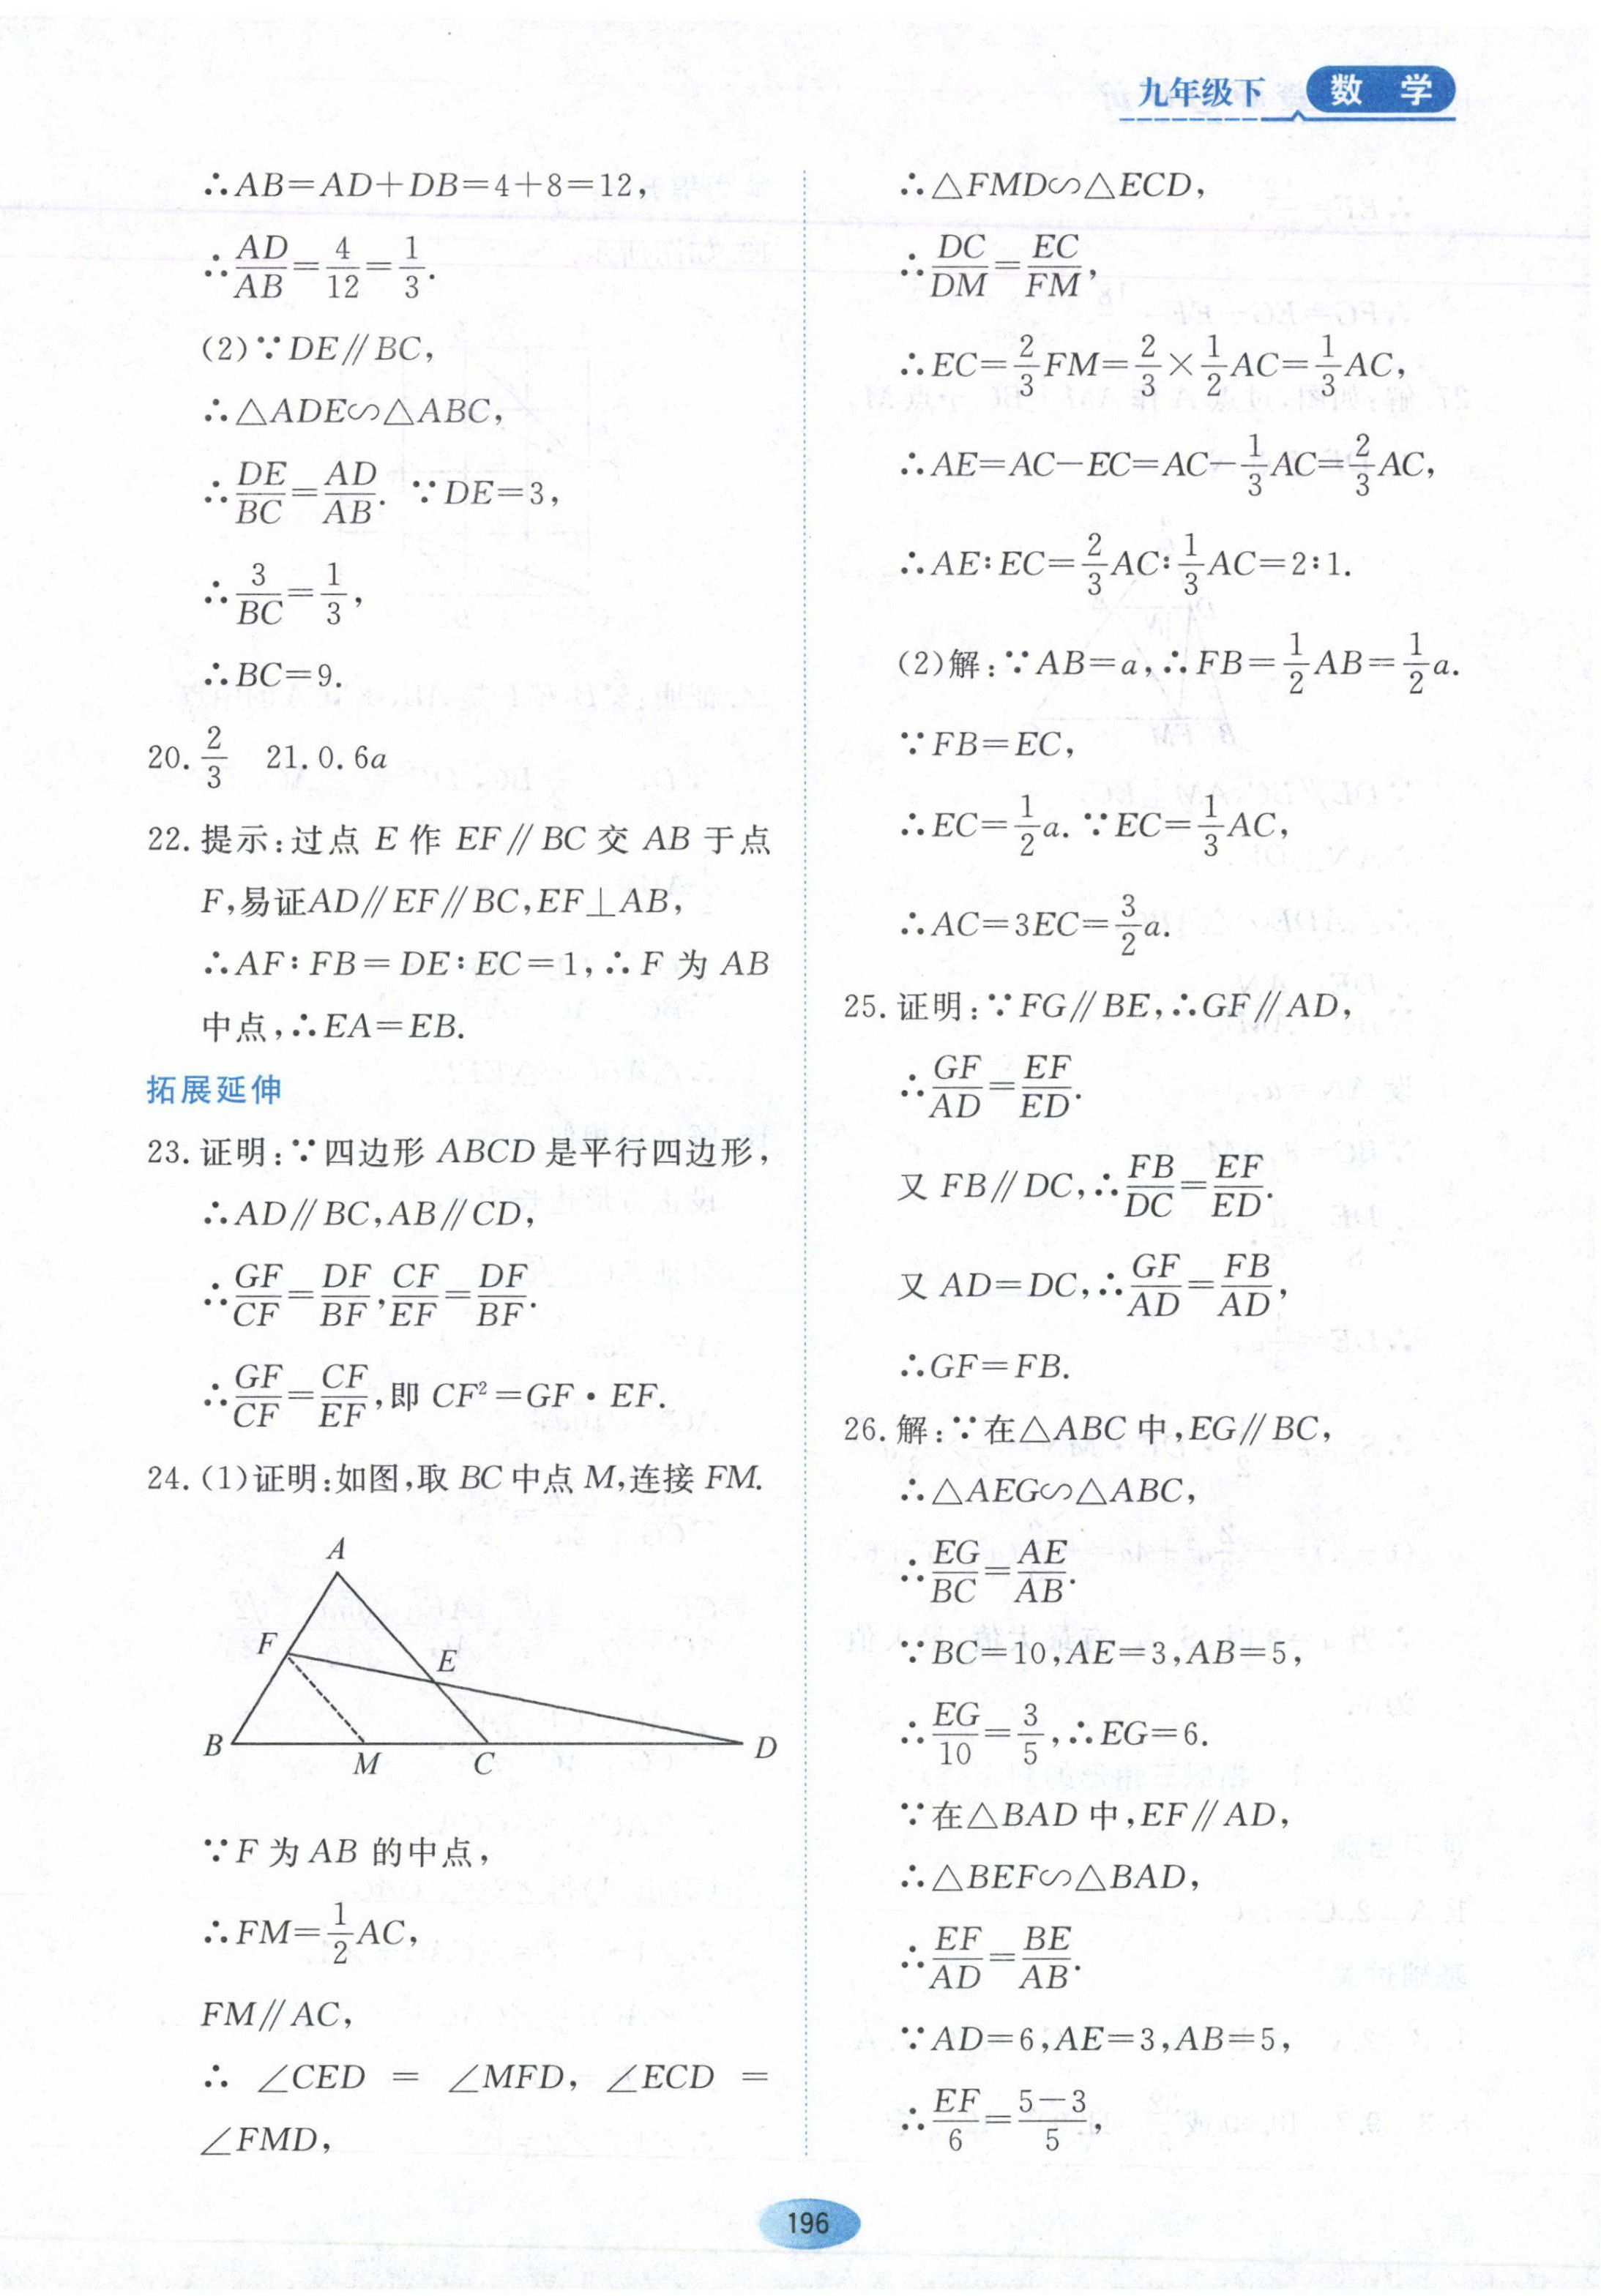 九年级下 数 学
∴AB=AD+DB=4+8=12,
∴AD/AB=4/12=1/3.
(2)∵DE∥BC,
∴△ADE∽△ABC,
∴DE/BC=AD/AB. ∵DE=3,
∴3/BC=1/3,
∴BC=9.
20. 2/3 21. 0.6a
22. 提示:过点 E 作 EF∥BC 交 AB 于点
F,易证AD∥EF∥BC,EF⊥AB,
∴AF∶FB=DE∶EC=1,∴F 为 AB
中点,∴EA=EB.
拓展延伸
23. 证明:∵四边形 ABCD 是平行四边形,
∴AD∥BC,AB∥CD,
∴GF/CF=DF/BF,CF/EF=DF/BF.
∴GF/CF=CF/EF,即 CF²=GF·EF.
24. (1)证明:如图,取 BC 中点 M,连接 FM.
A
F
E
B
M
C
D
∵F 为 AB 的中点,
∴FM=1/2AC,
FM∥AC,
∴ ∠CED = ∠MFD, ∠ECD =
∠FMD,
∴△FMD∽△ECD,
∴DC/DM=EC/FM,
∴EC=2/3FM=2/3×1/2AC=1/3AC,
∴AE=AC−EC=AC−1/3AC=2/3AC,
∴AE∶EC=2/3AC∶1/3AC=2∶1.
(2)解:∵AB=a,∴FB=1/2AB=1/2a.
∵FB=EC,
∴EC=1/2a. ∵EC=1/3AC,
∴AC=3EC=3/2a.
25. 证明:∵FG∥BE,∴GF∥AD,
∴GF/AD=EF/ED.
又 FB∥DC,∴FB/DC=EF/ED.
又 AD=DC,∴GF/AD=FB/AD,
∴GF=FB.
26. 解:∵在△ABC 中,EG∥BC,
∴△AEG∽△ABC,
∴EG/BC=AE/AB.
∵BC=10,AE=3,AB=5,
∴EG/10=3/5,∴EG=6.
∵在△BAD 中,EF∥AD,
∴△BEF∽△BAD,
∴EF/AD=BE/AB.
∵AD=6,AE=3,AB=5,
∴EF/6=5−3/5,
196